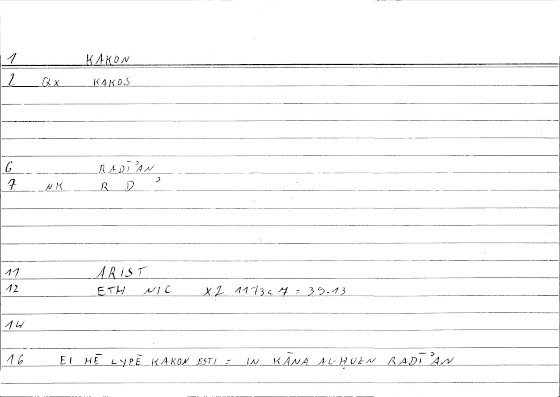 1 KAKON
2 Qx KAKOS
6 RADĪʾAN
7 NK R D ʾ
11 ARIST
12 ETH NIC X2 1173a 7 = 39.13
14
16 EI HĒ LYPĒ KAKON ESTI = IN KĀNA AL-ḤUZN RADĪʾAN